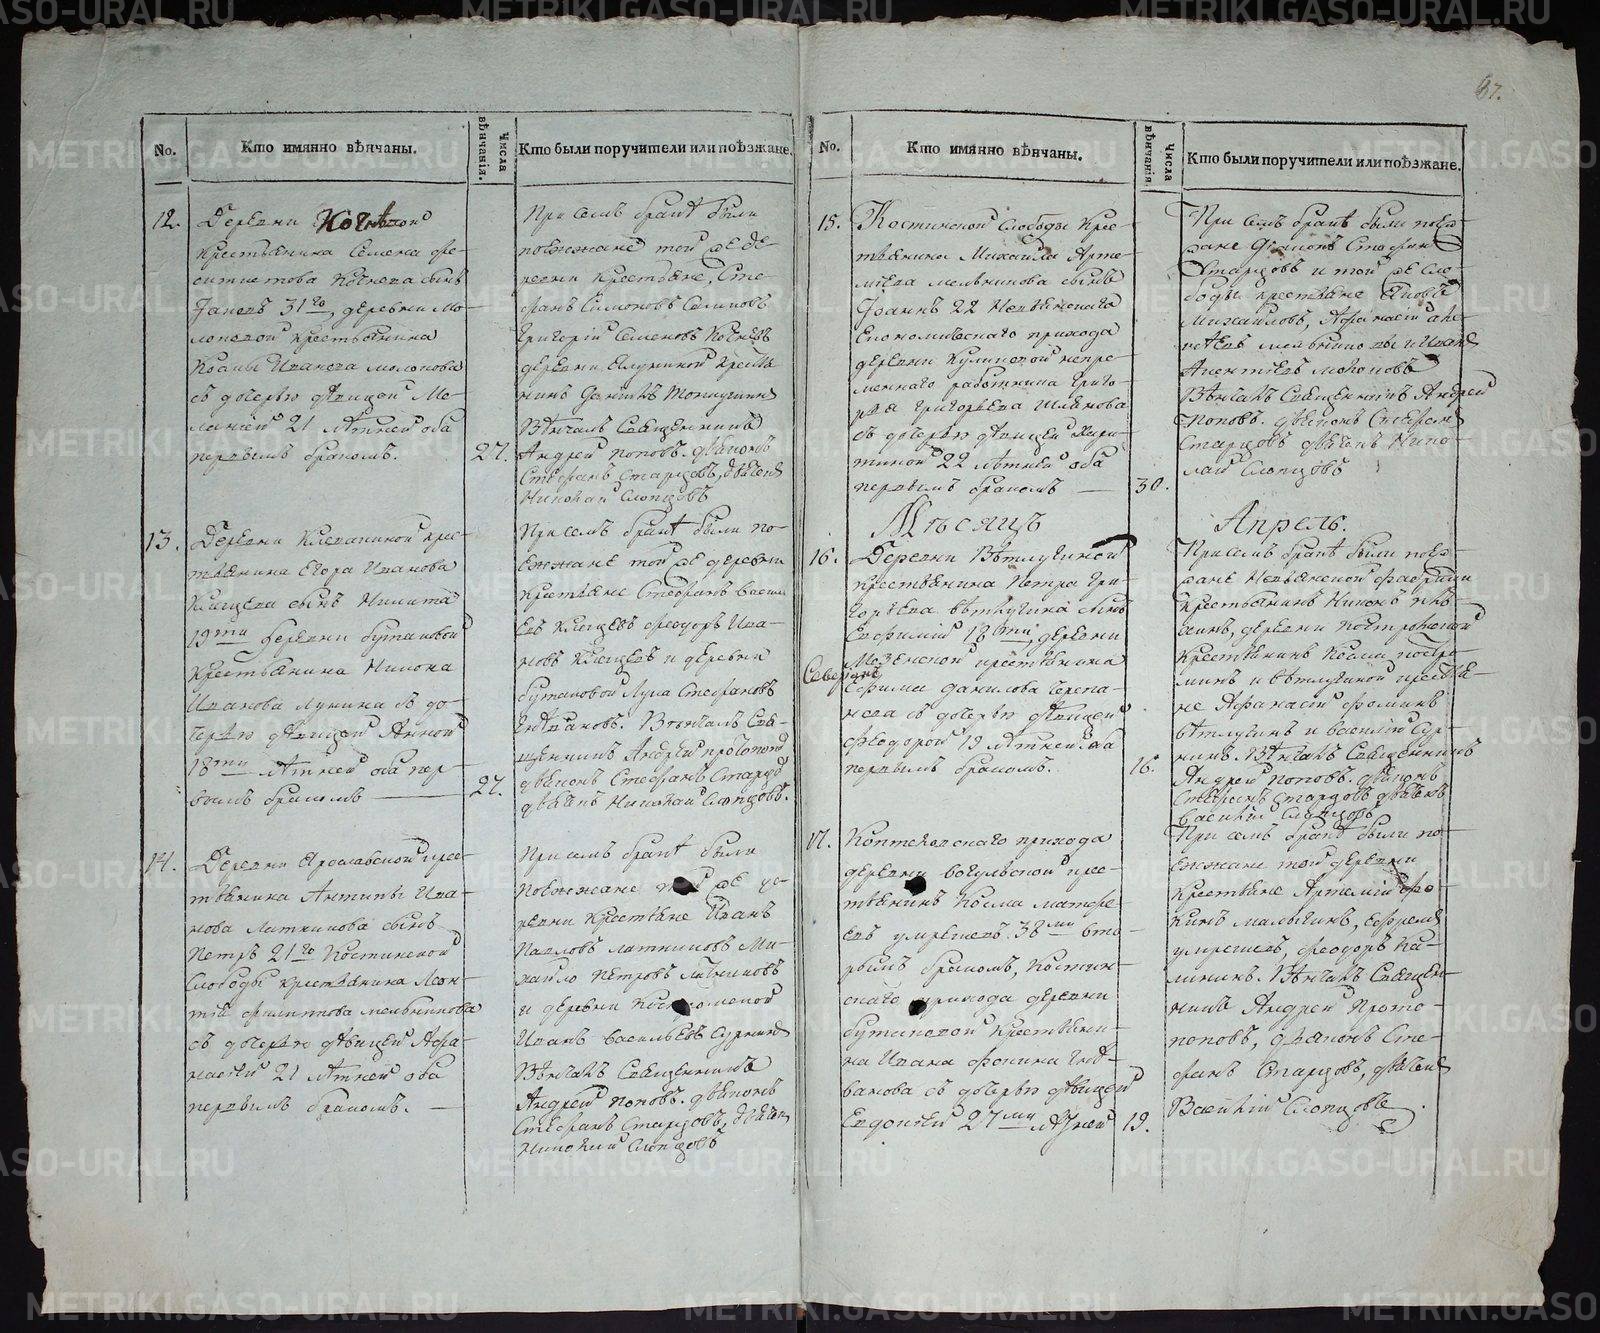 67.
No.
Кто имянно вѣнчаны.
Числа вѣнчанія.
Кто были поручители или поѣзжане.
12.
Деревни Кочневой
крестьянина Семена Фе-
Кочнева сынъ
Іаковъ 31го, деревни Мо-
локовой крестьянина
Козмы Иванова Молокова
съ дочерью дѣвицей Ме-
ланіей 21 лѣтней оба
первымъ бракомъ.
27.
При семъ бракѣ были
поѣзжане той же де-
ревни крестьяне, Сте-
фанъ Симоновъ
Григорій Семеновъ Кочневъ
деревни
Вѣнчалъ Священникъ
Андрей Поповъ. дьяконъ
Стефанъ Старцовъ, дьячекъ
Николай Слопцовъ
13.
Деревни Клевакиной крес-
тьянина Егора Иванова
Клещева сынъ Никита
19ти деревни Бутаковой
крестьянина Никона
Иванова Лукина съ до-
черью дѣвицей Анной
18ти лѣтней оба пер-
вымъ бракомъ
27.
При семъ бракѣ были по-
езжане той же деревни
крестьяне Стефанъ Васил
евъ Клещевъ Феодоръ Ива-
новъ Клещевъ и деревни
Бутаковой Лука Стефановъ
Вѣнчалъ Свя-
щенникъ Андрей Протопопо
дьяконъ Стефанъ Старцо
дьячекъ Николай Слопцовъ.
14.
Деревни Ярославской крес-
тьянина Антипы Ива-
нова Латникова сынъ
Петръ 21го Костинской
Слободы крестьянина Леон-
тія Филиппова Мельникова
съ дочерью дѣвицей Афа-
насьей 21 лѣтней оба
первымъ бракомъ.
При семъ бракѣ были
поѣзжане той же де-
ревни крестьяне Иванъ
Павловъ Латниковъ Ми-
хайло Петровъ Латниковъ
и деревни
Иванъ Васильевъ
Вѣнчалъ Священникъ
Андрей Поповъ. дьяконъ
Стефанъ Старцовъ, дьячек
Николай Слопцовъ
No.
Кто имянно вѣнчаны.
Числа вѣнчанія
Кто были поручители или поѣзжане.
15.
Костинской Слободы крес-
тьянина Михайла Арте-
міева Мельникова сынъ
Іоаннъ 22 Невьянскаго
Богоявленскаго прихода
деревни Куликовой непре-
меннаго работника Григо-
рья Григорьева
съ дочерью дѣвицей Хари-
тиной 22 лѣтней оба
первымъ бракомъ
30.
При семъ бракѣ были поѣз-
жане дьяконъ Стефанъ
Старцовъ и той же сло-
боды крестьяне Яковъ
Михайловъ, Афанасій Але-
ксѣевъ Мельниковы и Иванъ
Вѣнчалъ Священникъ Андрей
Поповъ. дьяконъ Стефанъ
Старцовъ дьячекъ Нико-
лай Слопцовъ
Мѣсяцъ Апрель.
16.
Деревни Вѣтлугиной
крестьянина Петра Гри-
горьева Вѣтлугина сынъ
Евфимій 18ти, деревни
Мезенской крестьянина
Северьян
Ефима Данилова Черепа-
нова съ дочерью дѣвицей
Феодорой 19 лѣтней оба
первымъ бракомъ.
16.
При семъ бракѣ были поѣз-
жане Невьянской фабрики
крестьянинъ Никонъ
деревни
крестьянинъ Козма
и Вѣтлугиной крестья-
не Афанасій Фоминъ
Вѣтлугинъ и Василій
Вѣнчалъ Священникъ
Андрей Поповъ. дьяконъ
Стефанъ Старцовъ дьячекъ
Василій Слопцовъ
17.
Коптеловскаго прихода
деревни Вогульской крес-
тьянинъ Козма Матфе-
евъ 38ми вто-
рымъ бракомъ, Костин-
скаго прихода деревни
Бутаковой крестьяни-
на Ивана Фокина
съ дочерью дѣвицей
Евдокіей 27ми лѣтней
19.
При семъ бракѣ были по-
езжане той деревни
крестьяне Артемій Фо-
кинъ Малыгинъ, Ефремъ
Феодоръ Ка-
лининъ. Вѣнчалъ Священ-
никъ Андрей Прото-
поповъ, дьяконъ Сте-
фанъ Старцовъ, дьячекъ
Василій Слопцовъ
METRIKI.GASO-URAL.RU